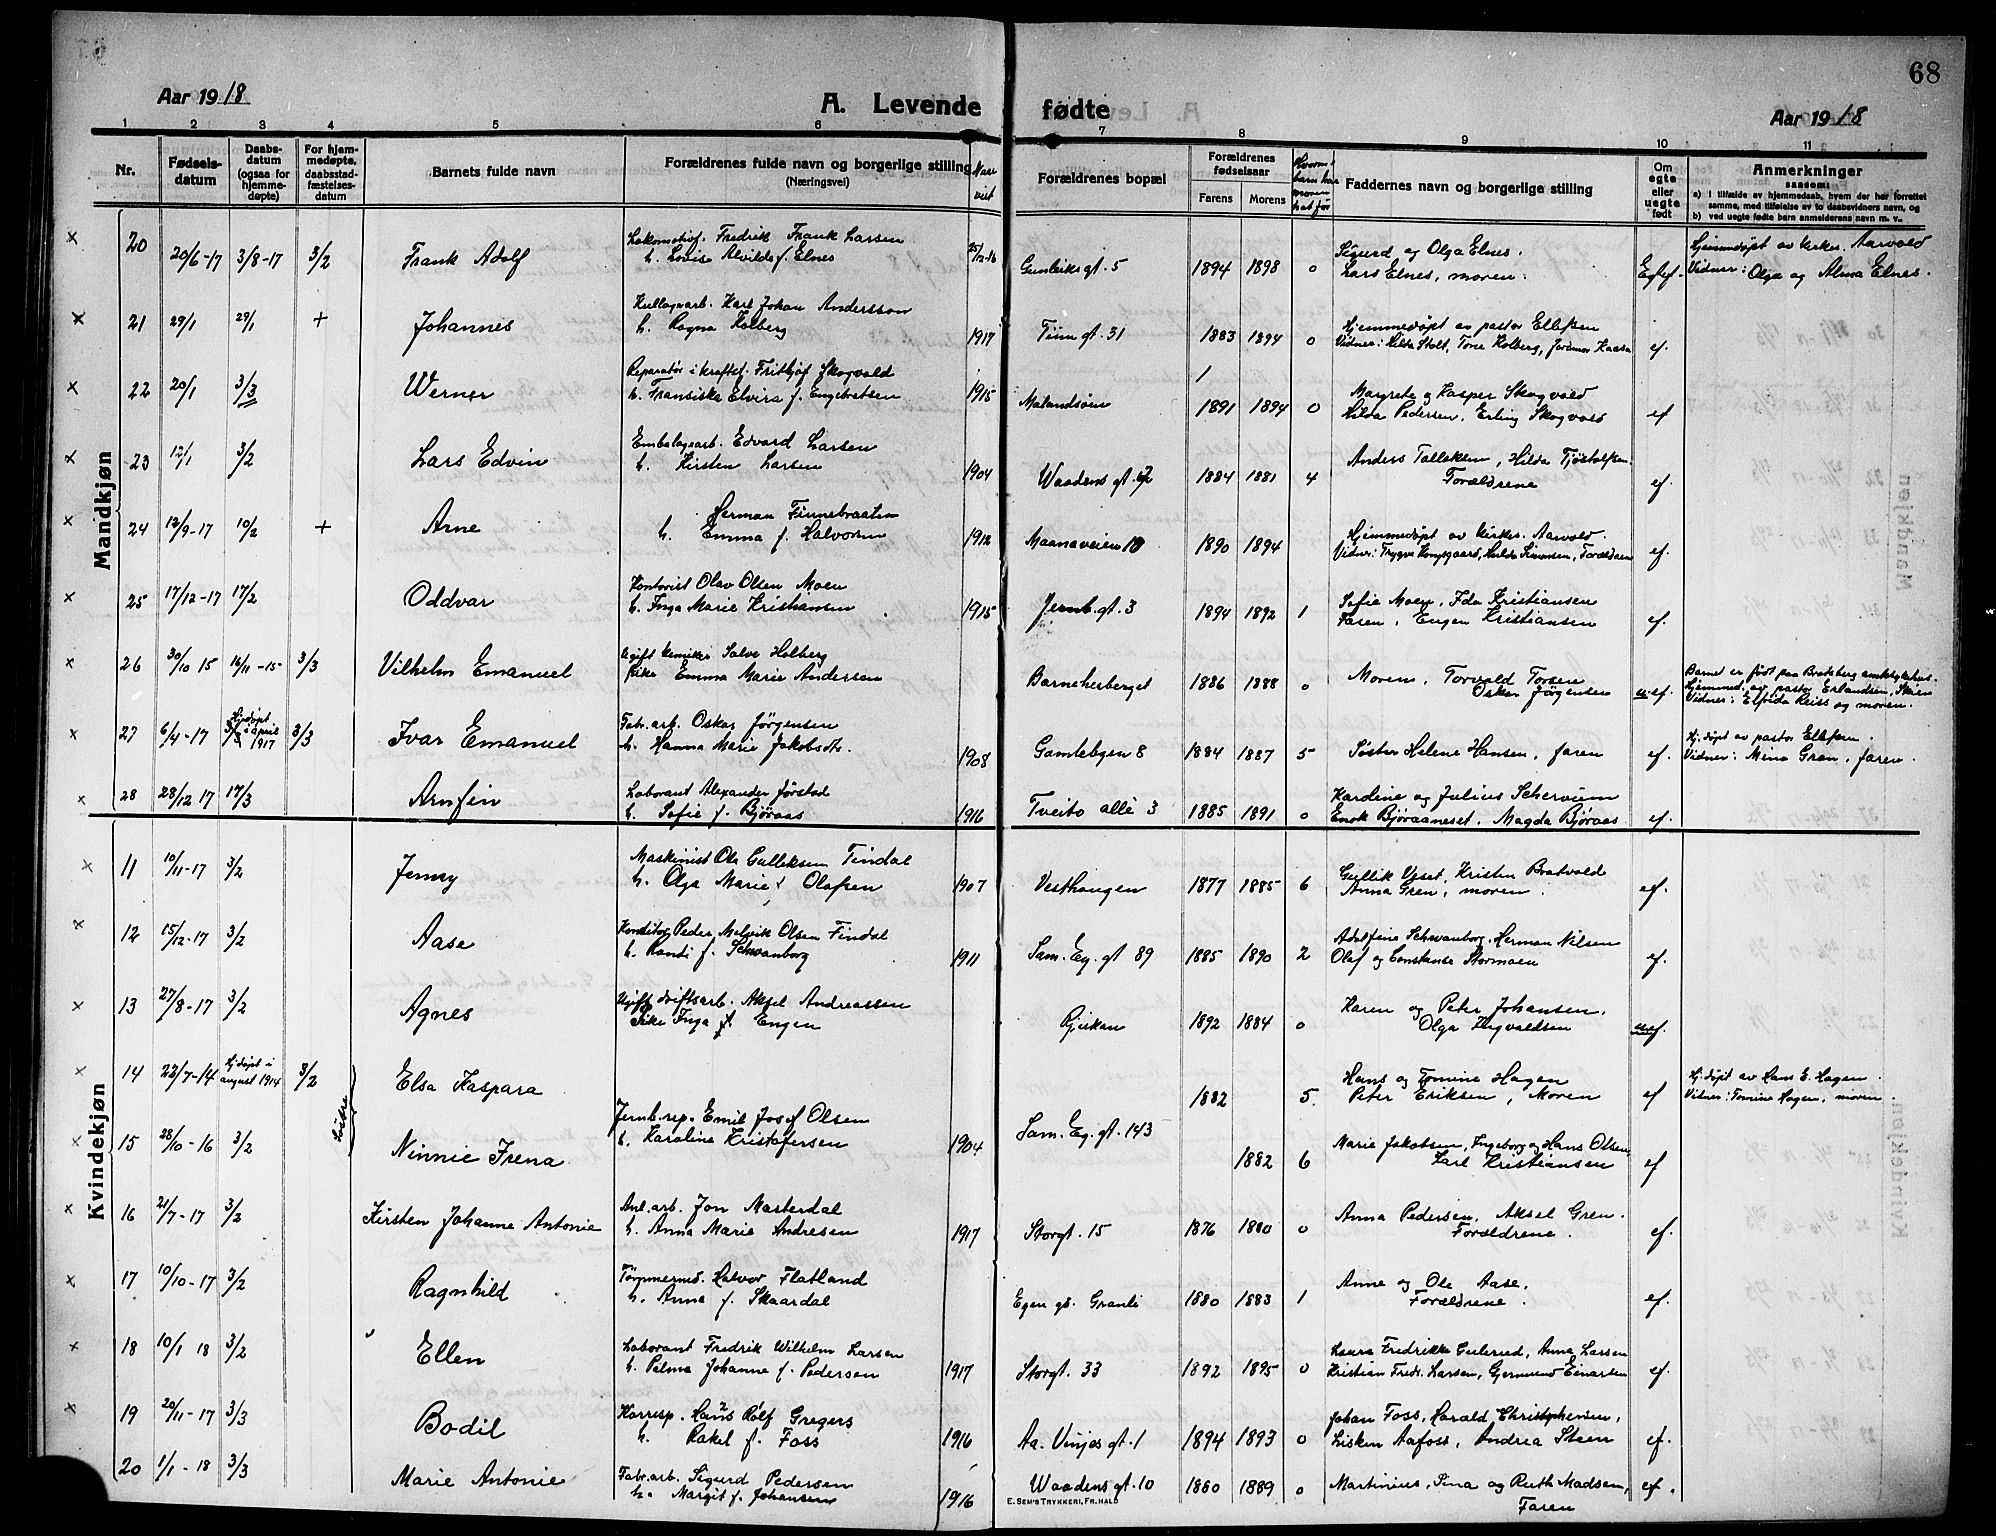 68
Aar 1918
A. Levende fødte
Aar 1918
1 2 3 4 5 6 7 8 9 10 11
Nr.
Fødsels-
datum
Daabs-
datum
(ogsaa for
hjemme-
døpte)
For hjem-
medøpte,
daabsstad-
fæstelses-
datum
Barnets fulde navn
Forældrenes fulde navn og borgerlige stilling
(Næringsvei)
Forældrenes bopæl
Forældrenes
fødselsaar
Farens Morens
Faddernes navn og borgerlige stilling
Om
egte
eller
uegte
født
Anmerkninger
saasom:
a) I tilfælde av hjemmedaab, hvem der har forrettet
samme, med tilføielse av to daabsvidners navn, og
b) ved uegte fødte barn anmelderens navn m. v..
Mandkjøn
20 20/6-17 3/8-17 3/2 Frank Adolf
Lokomotivf. Fredrik Frank Larsen
h. Lovise Alvilde f. Elnes
Gunleiksgt. 5 1894 1898 0
Sigurd og Olga Elnes.
Lars Elnes, moren.
Egtef.
Hjemmedøpt av kirkes. Aarvold
Vidner: Olga og Alma Elnes.
21 29/1 29/1 + Johannes
Karl Johan Andersson
h. Ragna Holberg 1917
Tinngt. 31 1883 1894 0
Hjemmedøpt av pastor Ellefsen
Vidner: Hilda Stolt, Tone Holberg, Kaasa
ef.
22 20/1 3/3 Werner
Reparatør i kraftst. Frithjof Skogvold
h. Fransiska Elvira f. Engebretsen 1915
1891 1894 0
Margrete og Kasper Skogvold
Hilda Pedersen, Erling Skogvold
ef
23 12/1 3/2 Lars Edvin
Embalagearb. Edvard Larsen
h. Kirsten Larsen 1904
Waadens gt. 1884 1881 4
Anders Tollefsen, Hilda
Forældrene
ef.
24 12/9-17 10/2 + Arne
Herman Finnebraaten
h. Emma f. Halvorsen 1912
Maanaveien 10 1890 1894
Hjemmedøpt av kirkes. Aarvold.
Vidner: Trygve Hulda Simonsen, Forældrene
ef.
25 17/12-17 17/2 Oddvar
Kontorist Olav Olsen Moen
h. Inga Marie Kristiansen 1915
Jernb. gt. 3 1894 1892 1
Sofie Moen, Ida Kristiansen
Faren, Eugen Kristiansen
ef.
26 30/10 15 16/11-15 3/3 Vilhelm Emanuel
Ugift kemiker Salve Holberg
Pike Emma Marie Andersen
Barneherberget 1886 1888 0
Moren, Torvald Torsen
Oskar Jørgensen
u-ef.
Barnet er født paa Bratsberg amtssykehus.
Hjemmed. av pastor Erlandsen, Skien
Vidner: Elfrida Reiss og moren.
27 6/4-17 Hj.døpt i april 1917 3/3 Ivar Emanuel
Fabr.arb. Oskar Jørgensen
h. Hanna Marie Jakobsdt. 1908
Gamlebyen 8 1884 1887 5
Søster Helene Hansen, faren
ef.
Hj.døpt av pastor Ellefsen.
Vidner: Mina Gran, faren.
28 28/12 17 17/3 Arnfin
Laborant Alexander Jørstad
h. Sofie f. Bjøraas 1916
Tveito allé 3 1885 1891 0
Kardine og Julius Schervum
Enok Bjøraaneset, Magda Bjøraas
ef.
Kvindekjøn
11 10/11-17 3/2 Jenny
Maskinist Ole Gulleksen Tindal
h. Olga Marie Olafsen 1907
Vesthaugen 1877 1885 6
Gullik Uset, Kristen Bratvold
Anna Gren, moren.
ef.
12 15/12-17 3/2 Aase
Konditor Peder Melvik Olsen Tindal
h. Randi f. Schwanborg 1911
Sam. Ey. gt 89 1885 1890 2
Adolfine Schwanborg, Herman Nilsen
Olaf og Constanse Stormoen
ef.
13 27/8-17 3/2 Agnes
Ugift driftsarb. Aksel Andreassen
Pike Inga f. Engen
Rjukan 1892 1884 0
Karen og Peter Johansen,
Olga Sigvaldsen
u-ef.
14 22/7-14 Hj.døpt i august 1914 3/2 Elsa Kaspara
Søstre
Jernb.rep. Emil Josef Olsen
h. Karoline Kristofersen 1904
Sam. Ey. gt. 143
1882 5
Hans og Tomine Hagen
Peter Eriksen, Moren
ef
Hj.døpt av Hans E. Hagen.
Vidner: Tomine Hagen, moren.
15 28/10-16 3/2 Ninnie Irena
1882 6
Marie Jakobsen, Ingeborg og Hans Olsen,
Karl Kristiansen
ef
16 21/7-17 3/2 Kirsten Johanne Antonie
Anl.arb. Jon Masterdal
h. Anna Marie Andresen 1917
Storgt. 15 1876 1880 0
Anna Pedersen, Aksel Gren.
Forældrene.
ef.
17 10/10-17 3/2 Ragnhild
Tømmermd. Halvor Flatland
h. Anne f. Skaardal
Egen gd. Granli 1880 1883 1
Anne og Ole Aase.
Forældrene.
ef.
18 10/1 18 3/2 Ellen
Laborant Fredrik Wilhelm Larsen
h. Palma Johanne f. Pedersen 1917
Storgt. 33 1892 1895 0
Laura Fredrikke Gulsrud, Anna Larsen
Kristian Fredr. Larsen, Gjermund Einarsen
ef.
19 20/11-17 3/3 Bodil
Korresp. Hans Rolf Gregers
h. Rakel f. Foss 1916
Aa. Vinjes gt. 1 1894 1893 0
Johan Foss, Harald Christophersen,
Lisken Aafoss, Andrea Steen
ef.
20 1/1-18 3/3 Marie Antonie
Fabr.arb. Sigurd Pedersen
h. Margit f. Johansen 1916
Waadens gt. 10 1880 1889 0
Martinius, Sina og Ruth Madsen,
Faren
ef.
E. SEM'S TRYKKERI, FR.HALD